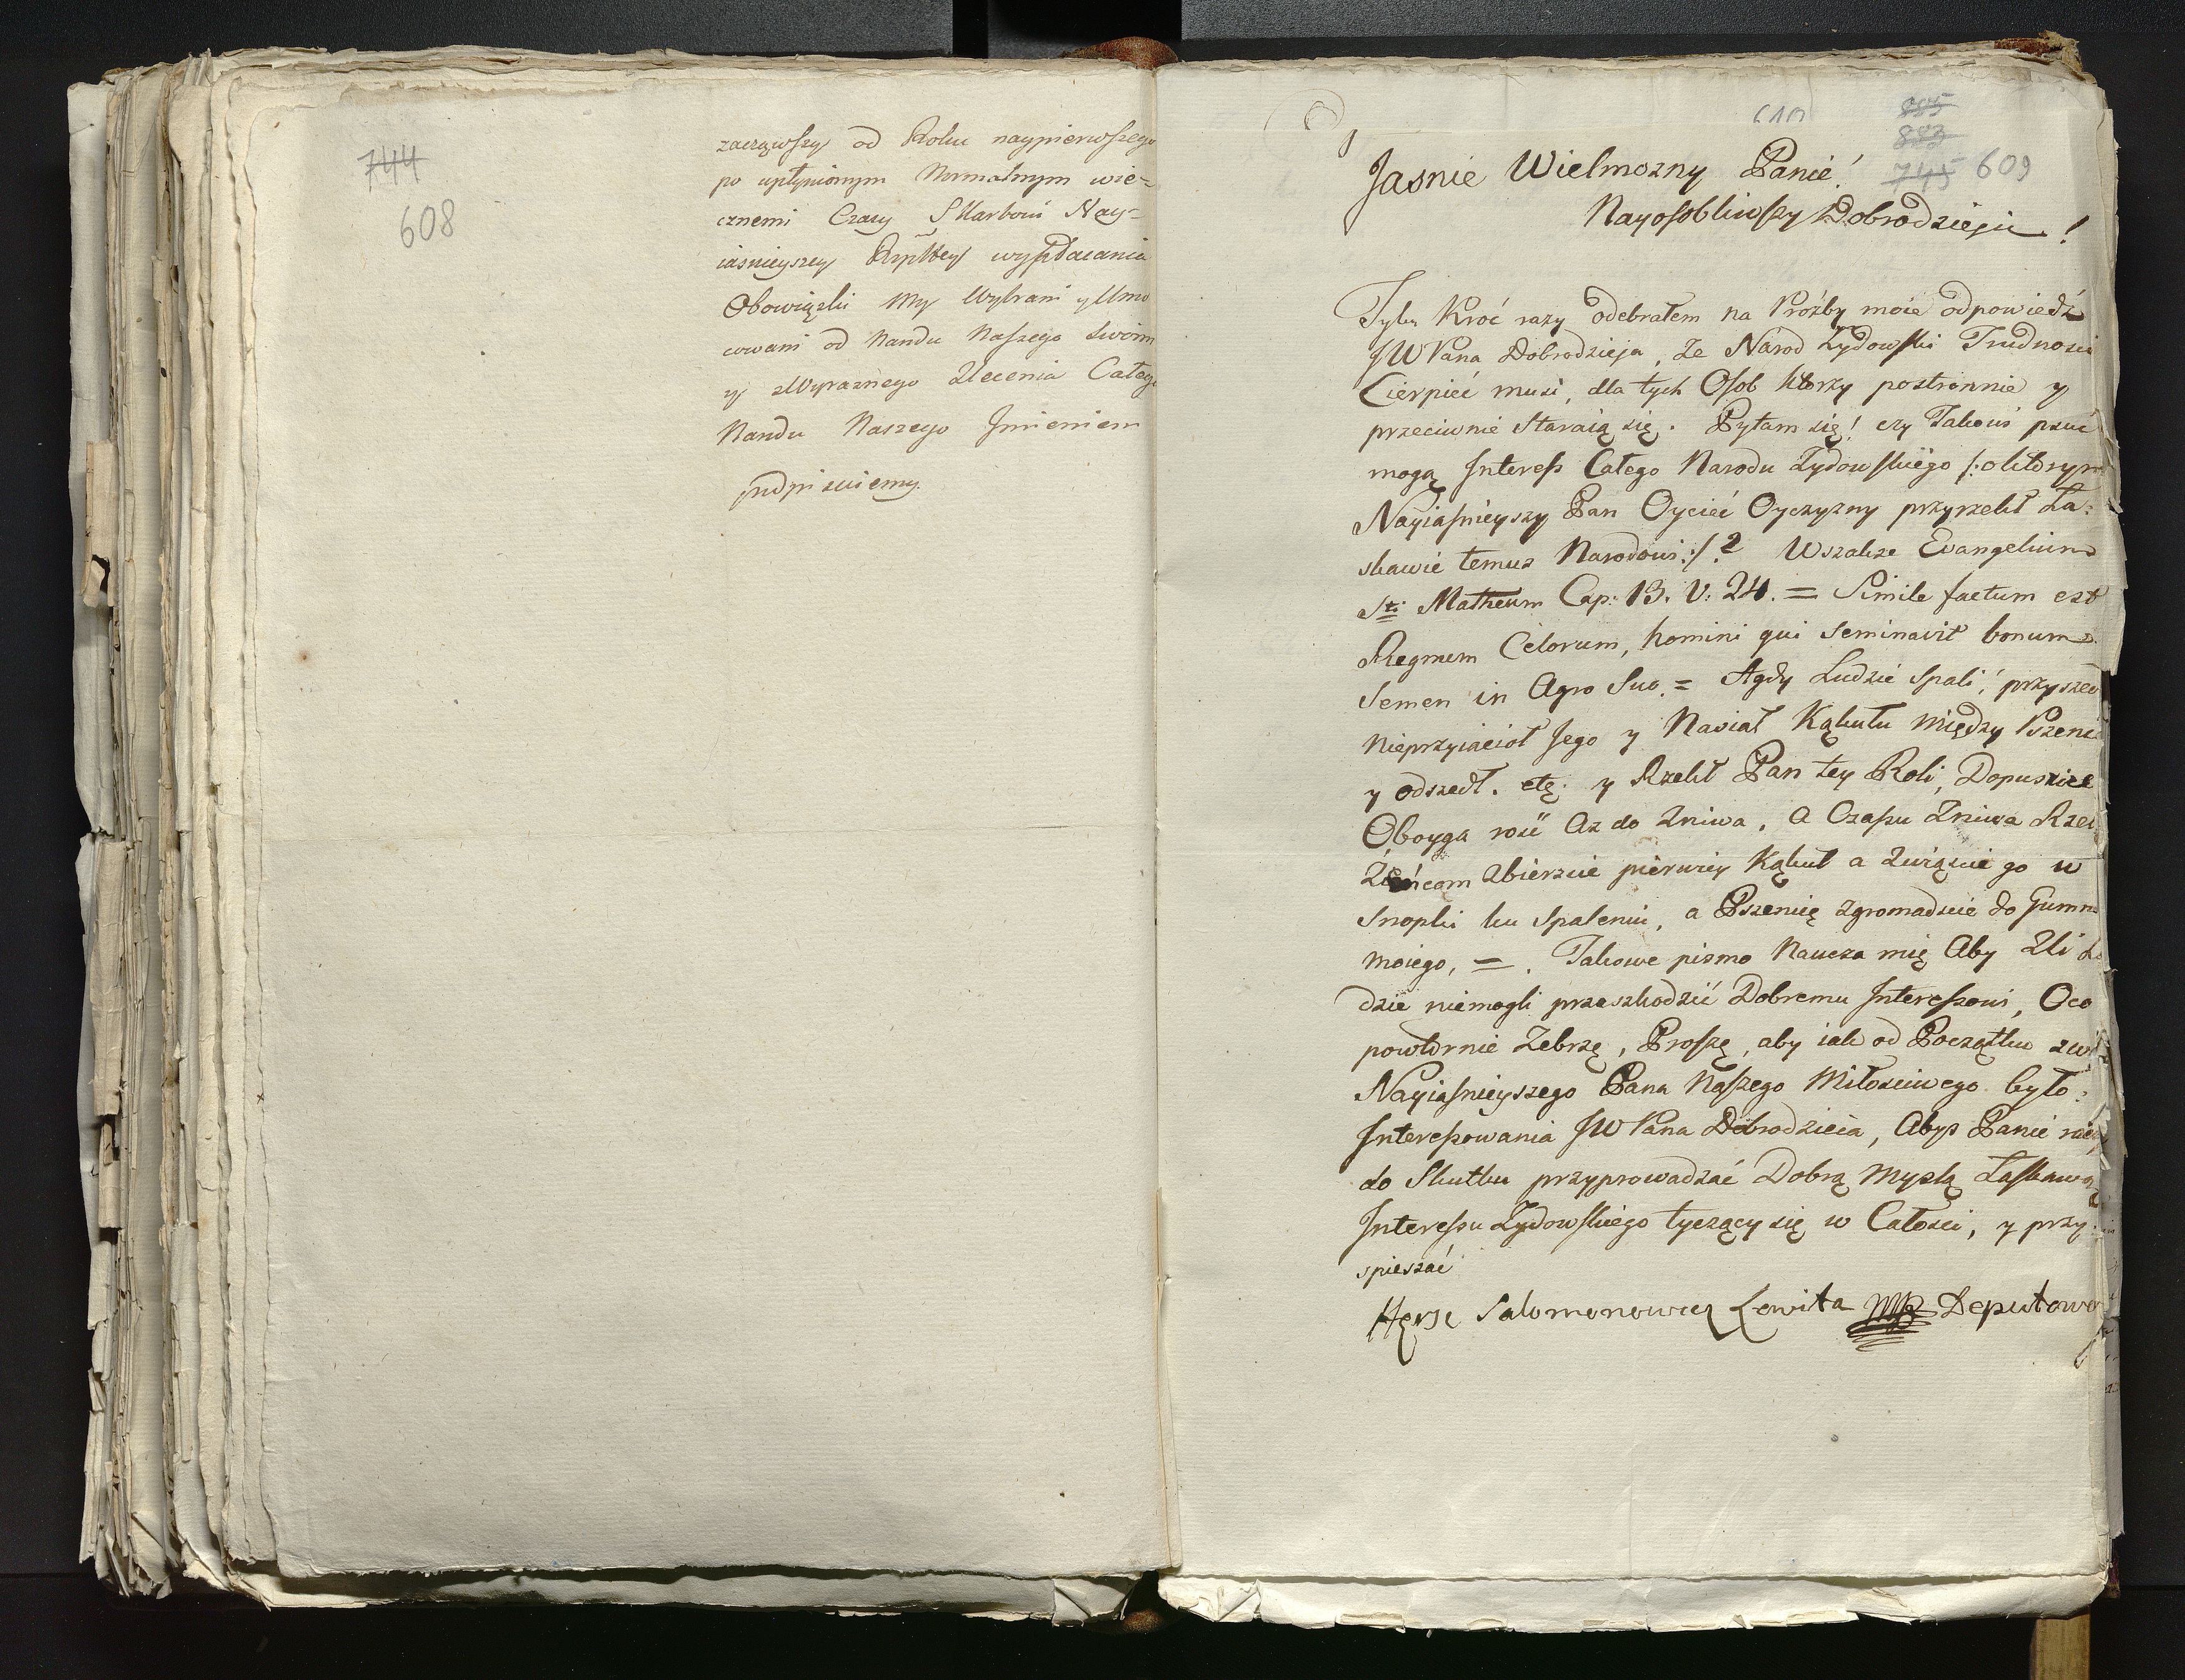 744
608
zacząwszy od Roku naypierwszego
po upłynionym Normalnym wie=
cznemi Czasy Skarbowi Nay=
iaśnieyszey Rzpltey wypłacania
Obowiązki My Wybrani y Umo
cowani od Narodu Naszego Swoim
y zWyraznego Zlecenia Całego
Narodu Naszego Jmieniem
podpisuiemy.
610
885
883
745 609
Jasnie Wielmozny Panie!
Nayosobliwszy Dobrodzieju!
Tylu Kroć razy odebrałem na Proźby moie odpowiedź
JWPana Dobrodzieja, Ze Národ Zydowski Trudnosci
Cierpieć musi, dla tych Osob którzy postronnie y
przeciwnie Staraią się. Pytam się! czy Takowi psuć
mogą Interess Całego Narodu Zydowskiego /:o którym
Nayiaśnieyszy Pan Oyciec Oyczyzny przyrzekł Ła:
skawie temuz Narodowi:/? Wszakze Evangelium
Sti Matheum Cap: 13. V: 24. = Simile factum est
Regnum Celorum, homini qui Seminavit bonum
Semen in Agro Suo. = Agdy Ludzie Spali, przyszed
Nieprzyiacioł Jego y Nasiał Kąkolu między Pszenic
y odszedł. etc. y Rzekł Pan tey Roli, Dopuśćcie
Oboyga rość Az do Zniwa, A Czasu Zniwa Rzek
Zeńcom Zbierzcie pierwiey Kąkol a Związcie go w
Snopki ku Spaleniu, a Pszenicę zgromadzcie do Gumna
moiego, =. Takowe pismo Naucza mię Aby Zli Lu
dzie niemogli przeszkodzić Dobremu Interessowi, Oco
powtornie Zebrzę, Proszę, aby iak od Początku zwi
Nayiaśnieyszego Pana Naszego Miłosciwego było:
Interessowania JWPana Dobrodzieia, Abyś Panie racz
do Skutku przyprowadzać Dobrą Myslą Łaskawą
Interessu Zydowskiego tyczący się w Całosci, y przy:
spieszać
Hersz Salomonowicz Lewita mp Deputowa